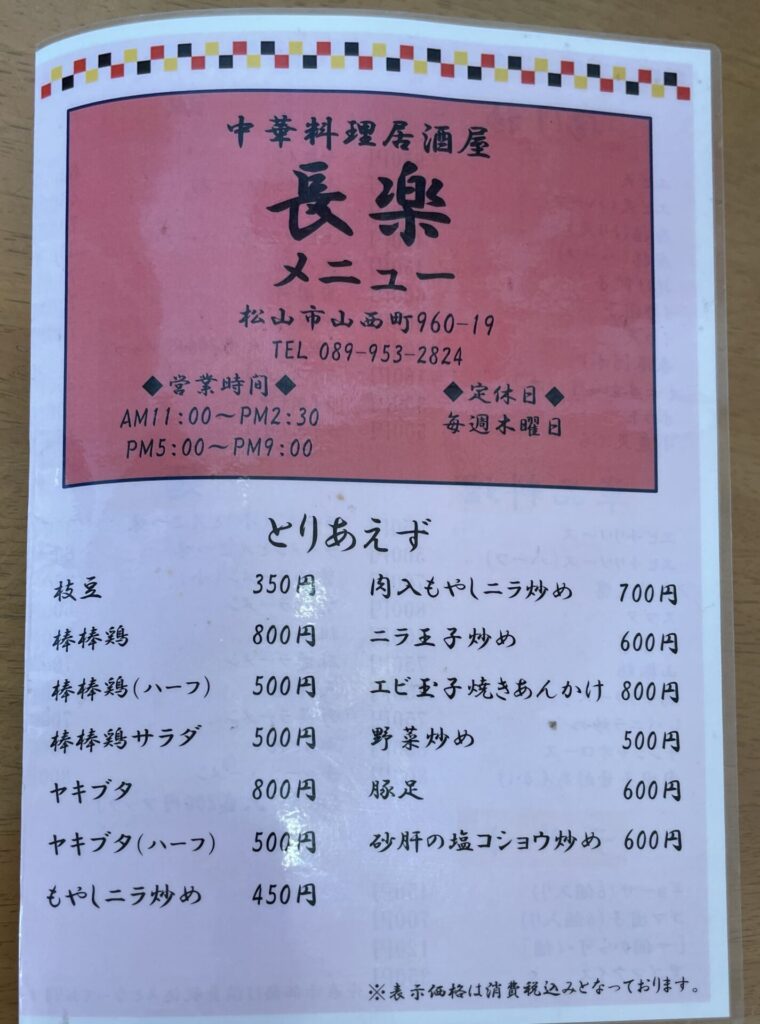 中華料理居酒屋
長楽
メニュー
松山市山西町960-19
TEL 089-953-2824
◆営業時間◆
AM11:00～PM2:30
PM5:00～PM9:00
◆定休日◆
毎週木曜日
とりあえず
枝豆 350円
棒棒鶏 800円
棒棒鶏(ハーフ) 500円
棒棒鶏サラダ 500円
ヤキブタ 800円
ヤキブタ(ハーフ) 500円
もやしニラ炒め 450円
肉入もやしニラ炒め 700円
ニラ玉子炒め 600円
エビ玉子焼きあんかけ 800円
野菜炒め 500円
豚足 600円
砂肝の塩コショウ炒め 600円
※表示価格は消費税込みとなっております。